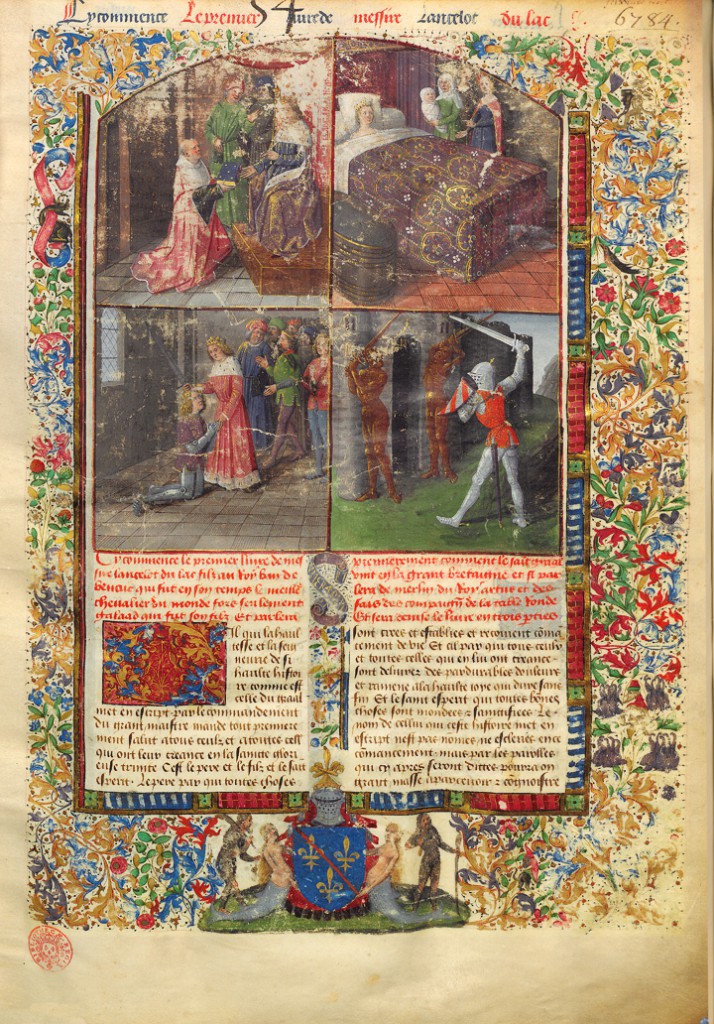 Cy commence Le premier liure de messire Lancelot du lac
6784.
Cy commence le premier liure de mes
sire lancelot du lac filz au Roy ban de
benuic qui fut en son temps le meille
cheualier du monde fors seulement
galaad qui fut son filz Et parlera
Il qui la haul
tesse et la sei
neurie de si
haulte histoi
re comme est
celle du graal
met en escript par le commandement
du grant maistre mande tout premiere
ment salut a tous ceulz et a toutes celles
qui ont leur creance en la sainte glori
euse trinite C est le pere et le filz et le saint
esperit . Le pere par qui toutes choses
premierement comment le saint graal
vint en la grant bretaigne et si par
lera de merlin du Roy artus et des
fais des compaignons de la table Ronde
Et sera deuise le liure en trois parties
sont crees et establies et recoiuent comm
cement de vie Et il par qui tous ceulx
et toutes celles qui en lui ont creance
sont deliurez des pardurables douleurs
et ramene a la haulte ioye qui dure sans
fin Et le saint esperit qui toutes bonnes
choses sont mondees et saintefiees Le
nom de cellui qui ceste histoire met en
escript nest pas nomme ne esclerie en ce
commancement mais par les parolles
qui cy apres seront dittes pourra on
grant masse apparceuoir et congnoistre